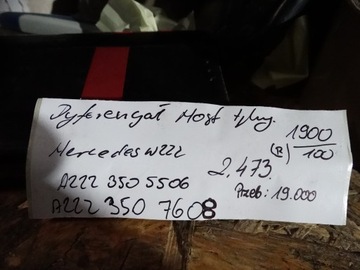 Dyferencjał Most tylny.
1900
(B) 100
Mercedes W222
2.473
A222 350 5506
Przeb: 19.000
A222 350 7608